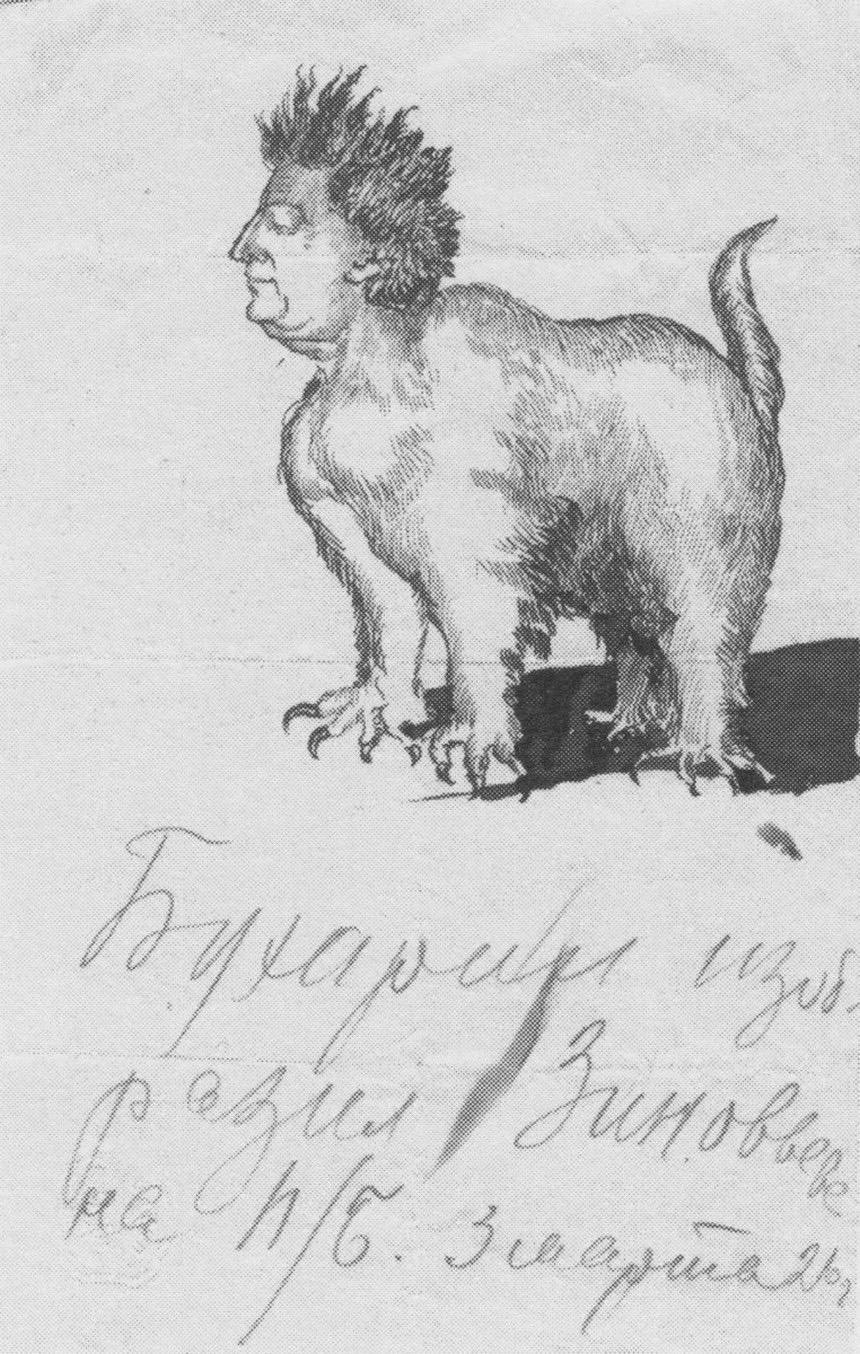 Бухарин изоб
разил Зиновьева
на П/Б. 3 марта 26 г.